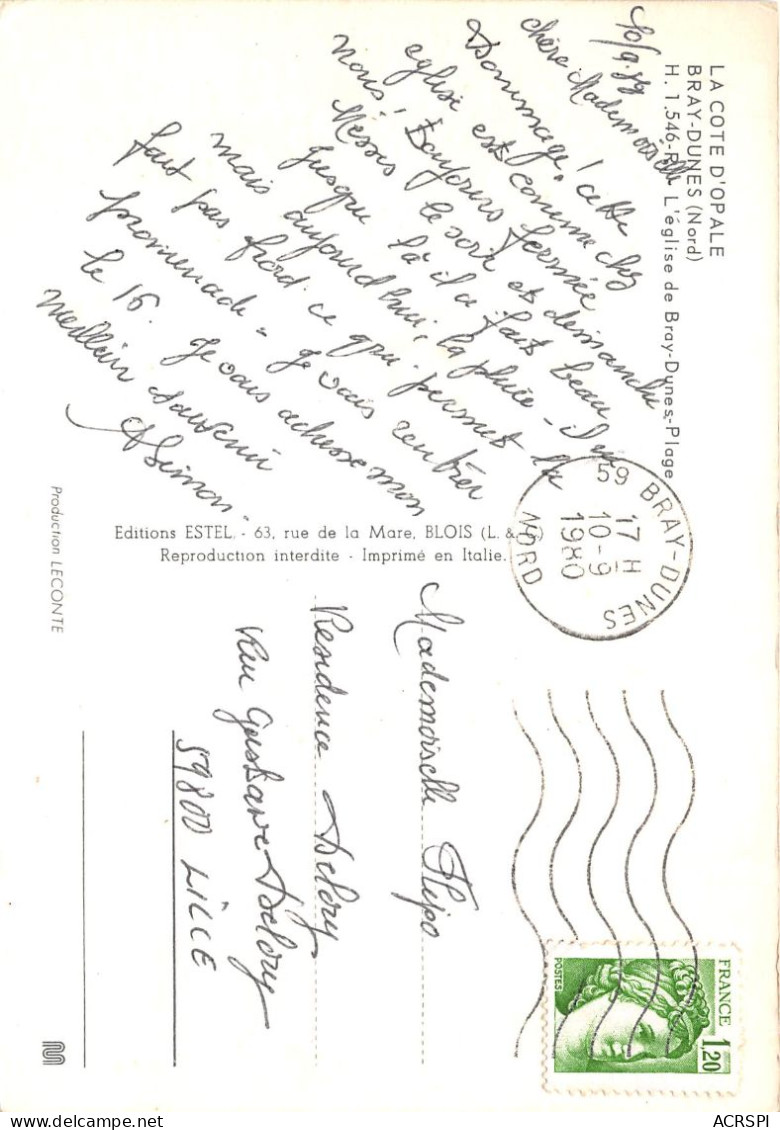 LA COTE D'OPALE
BRAY-DUNES (Nord)
H. 1.546-R L'église de Bray-Dunes-Plage
10/9.80
chère Mademoiselle
Dommage! cette
église est comme chez
nous, toujours fermée
Messes le soir et dimanche
jusque là il a fait beau
mais aujourd'hui, la pluie - Il ne
fait pas froid ce qui permet la
promenade - Je vais rentrer
le 16. Je vous adresse mon
meilleur souvenir
ASimon.
Editions ESTEL, - 63, rue de la Mare, BLOIS (L. &
Reproduction interdite - Imprimé en Italie.
Production LECONTE
59 BRAY-DUNES
17 H
10-9
1980
NORD
FRANCE
1,20
POSTES
Mademoiselle Flipo
Résidence Delory
Rue Gustave Delory
59800 LILLE
M
ACRSPI